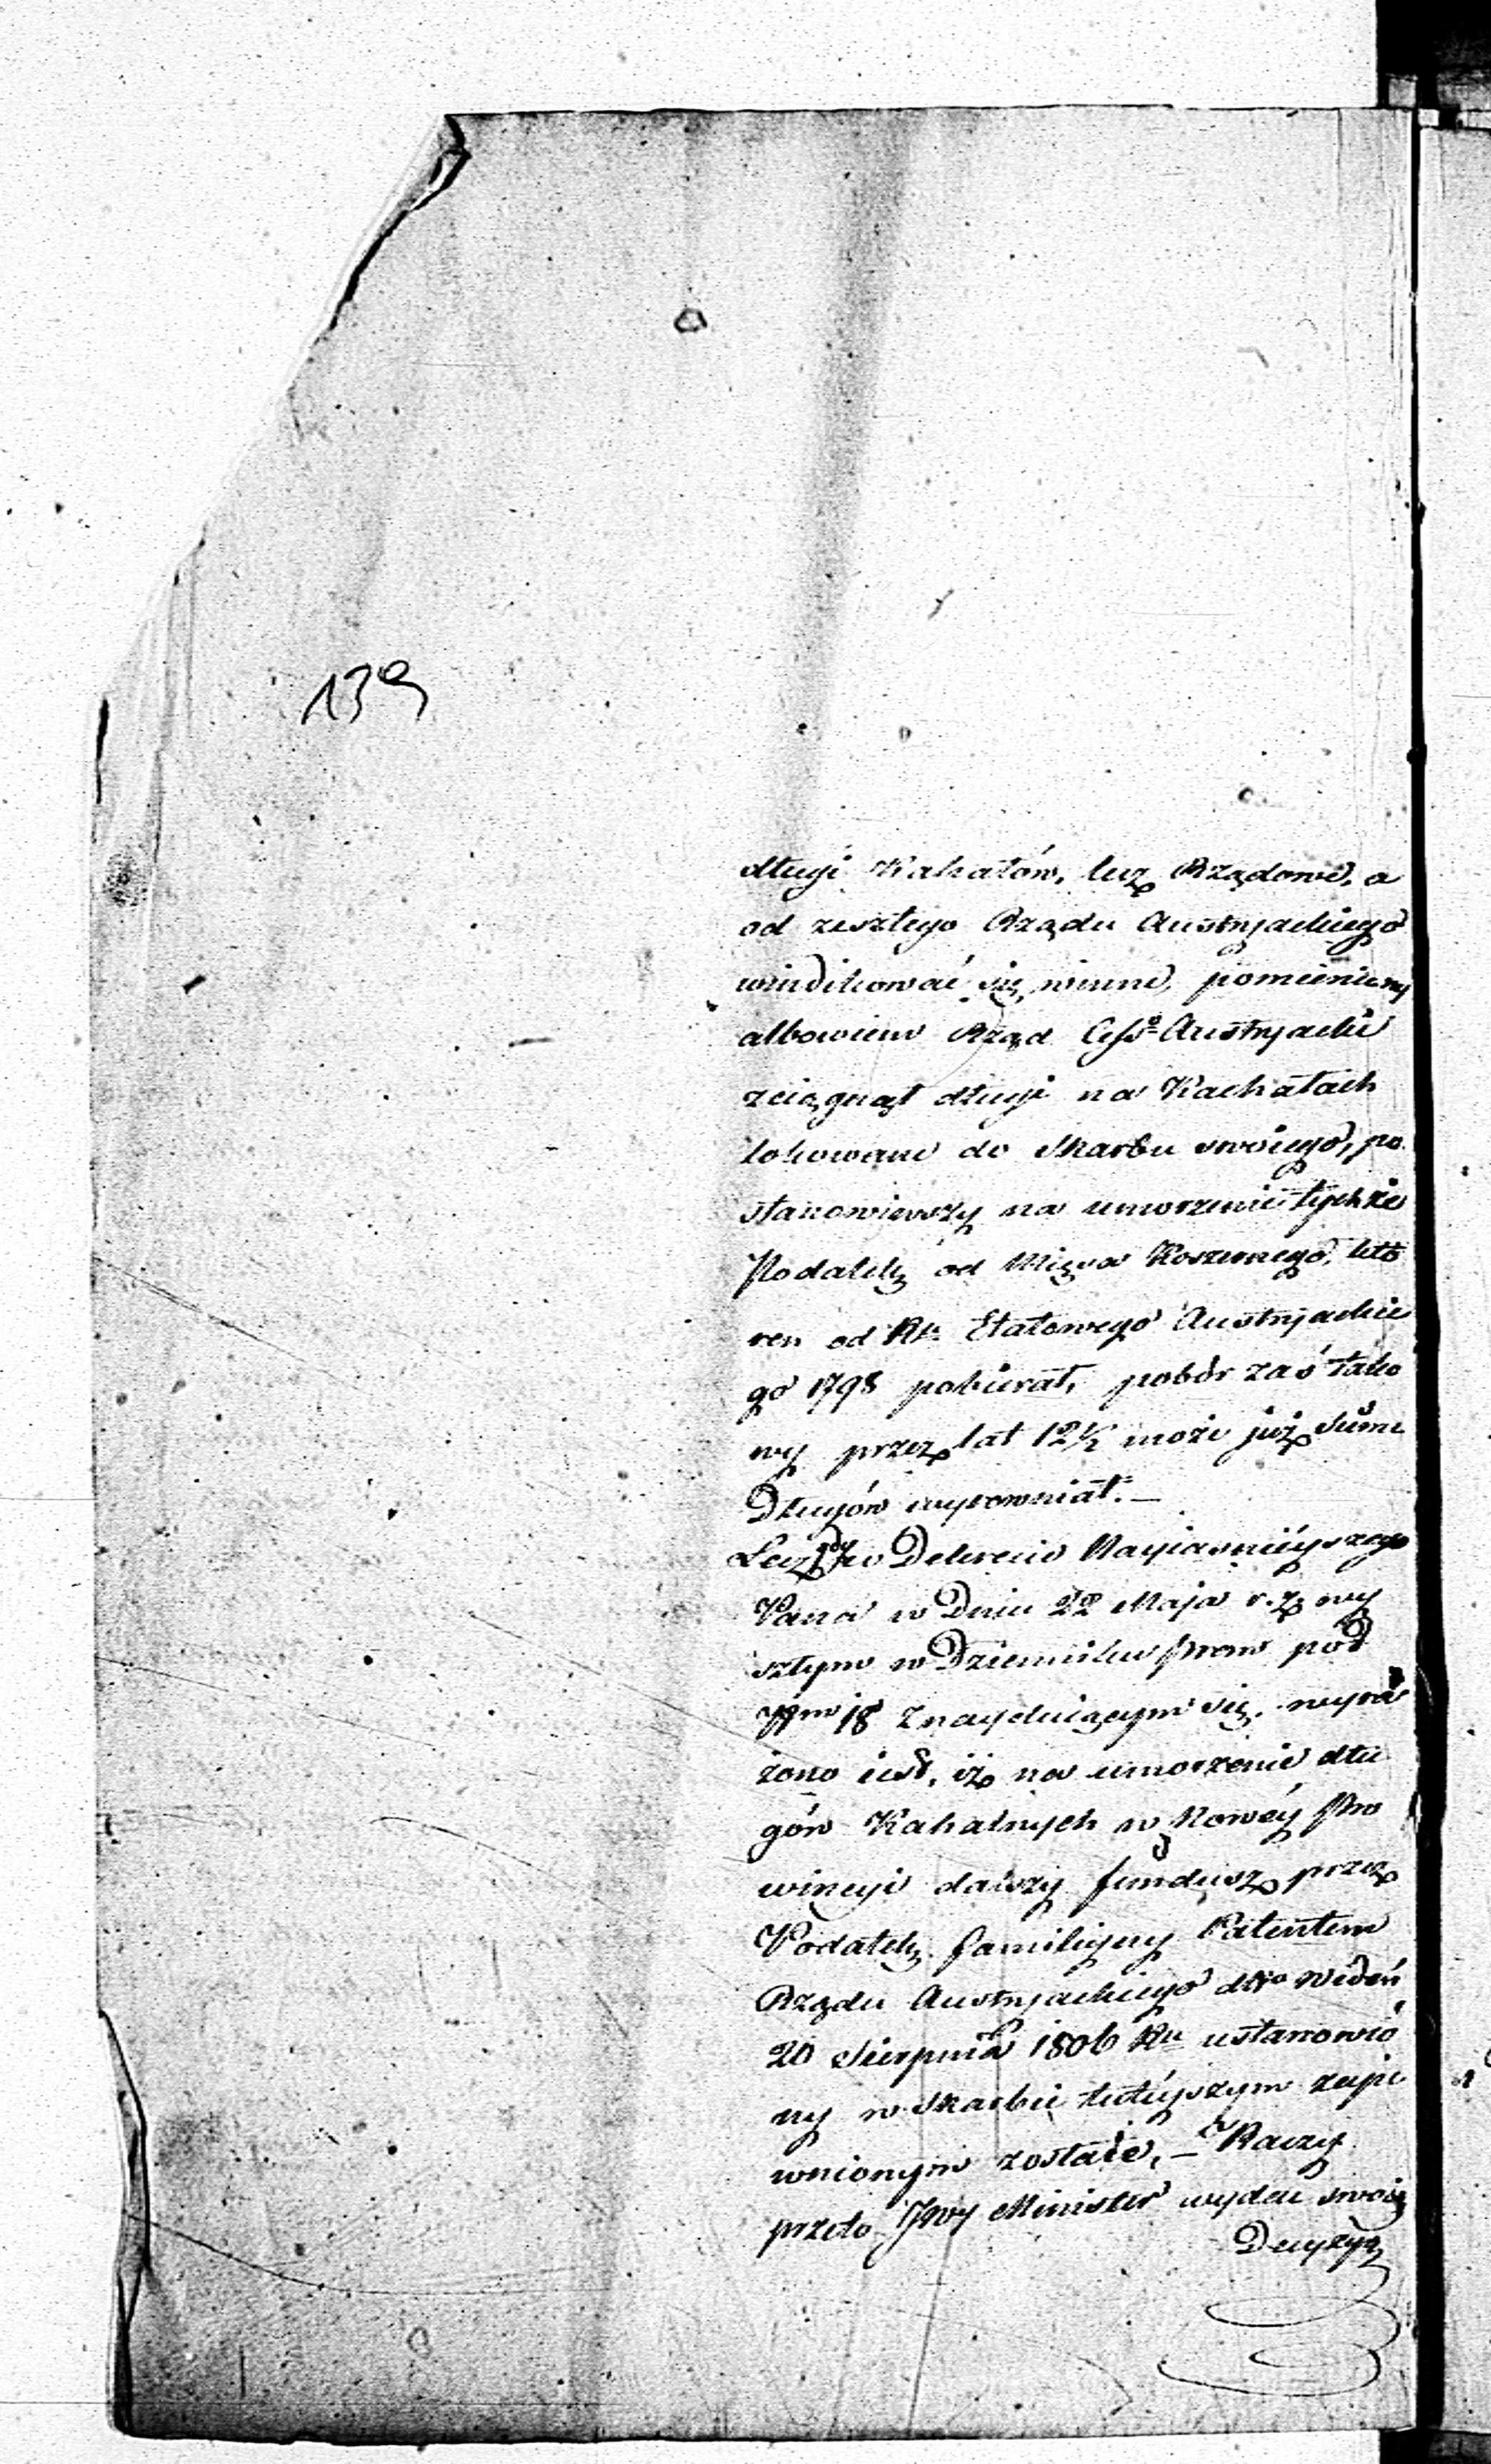 139
długi Kahałów, lecz Rządowe, a
od zeszłego Rządu Austryackiego
windikować się winne, pomieniony
albowiem Rząd Ces. Austryacki
ściągnął długi na Kachałach
lokowane do Skarbu swoiego, po
stanowiwszy na umorzenie tychże
Podatek od Mięsa Koszernego, któ
ren od Rku Etatowego Austryackie
go 1798 pobierał, pobór zaś tako
wy przez lat 12½ może już Summe
Długów wyrownał.—
Lecz gdy w Dekrecie Nayiasnieyszego
Pana w Dniu 22 Maja r. z. wy
szłym w Dzienniku Praw pod
Nrm 18 znayduiącym się, wyra
żono iest, iż na umorzenie dłu
gów Kahalnych w Nowéy Pro
wincyi dalszy fundusz przez
Podatek familijny Patentem
Rządu Austryackiego dtto Wiedeń
20 Sierpnia 1806 Ru ustanowio
ny w Skarbie tutéyszym zape
wnionym zostaie,— Raczy
przeto JWny Minister wydać swoią
Decyzyą